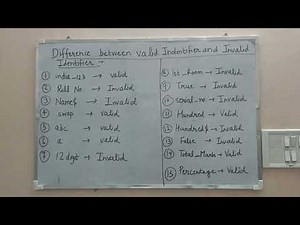 Difference between valid Indentifier and Invalid
Identifier :-
① india_123 → valid
② Roll No → Invalid
③ Name$ → Invalid
④ swap → valid
⑤ abc → valid
⑥ a → valid
⑦ 12 dept → Invalid
⑧ 1st_Room → Invalid
⑨ True → Invalid
⑩ serial_no → Invalid
⑪ Hundred → Valid
⑫ Hundred$ → Invalid
⑬ False → Invalid
⑭ Total_Mark → Valid
⑮ Percentage → Valid